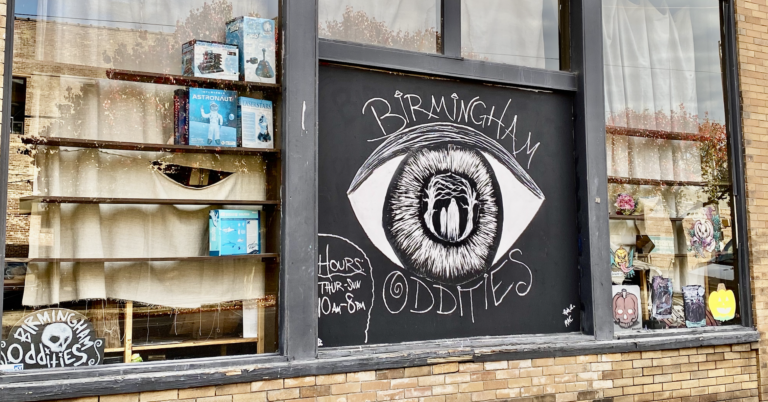 ASTRONAUT
BIRMINGHAM
ODDITIES
HOURS:
THUR-SUN
10AM-8PM
BIRMINGHAM
ODDITIES